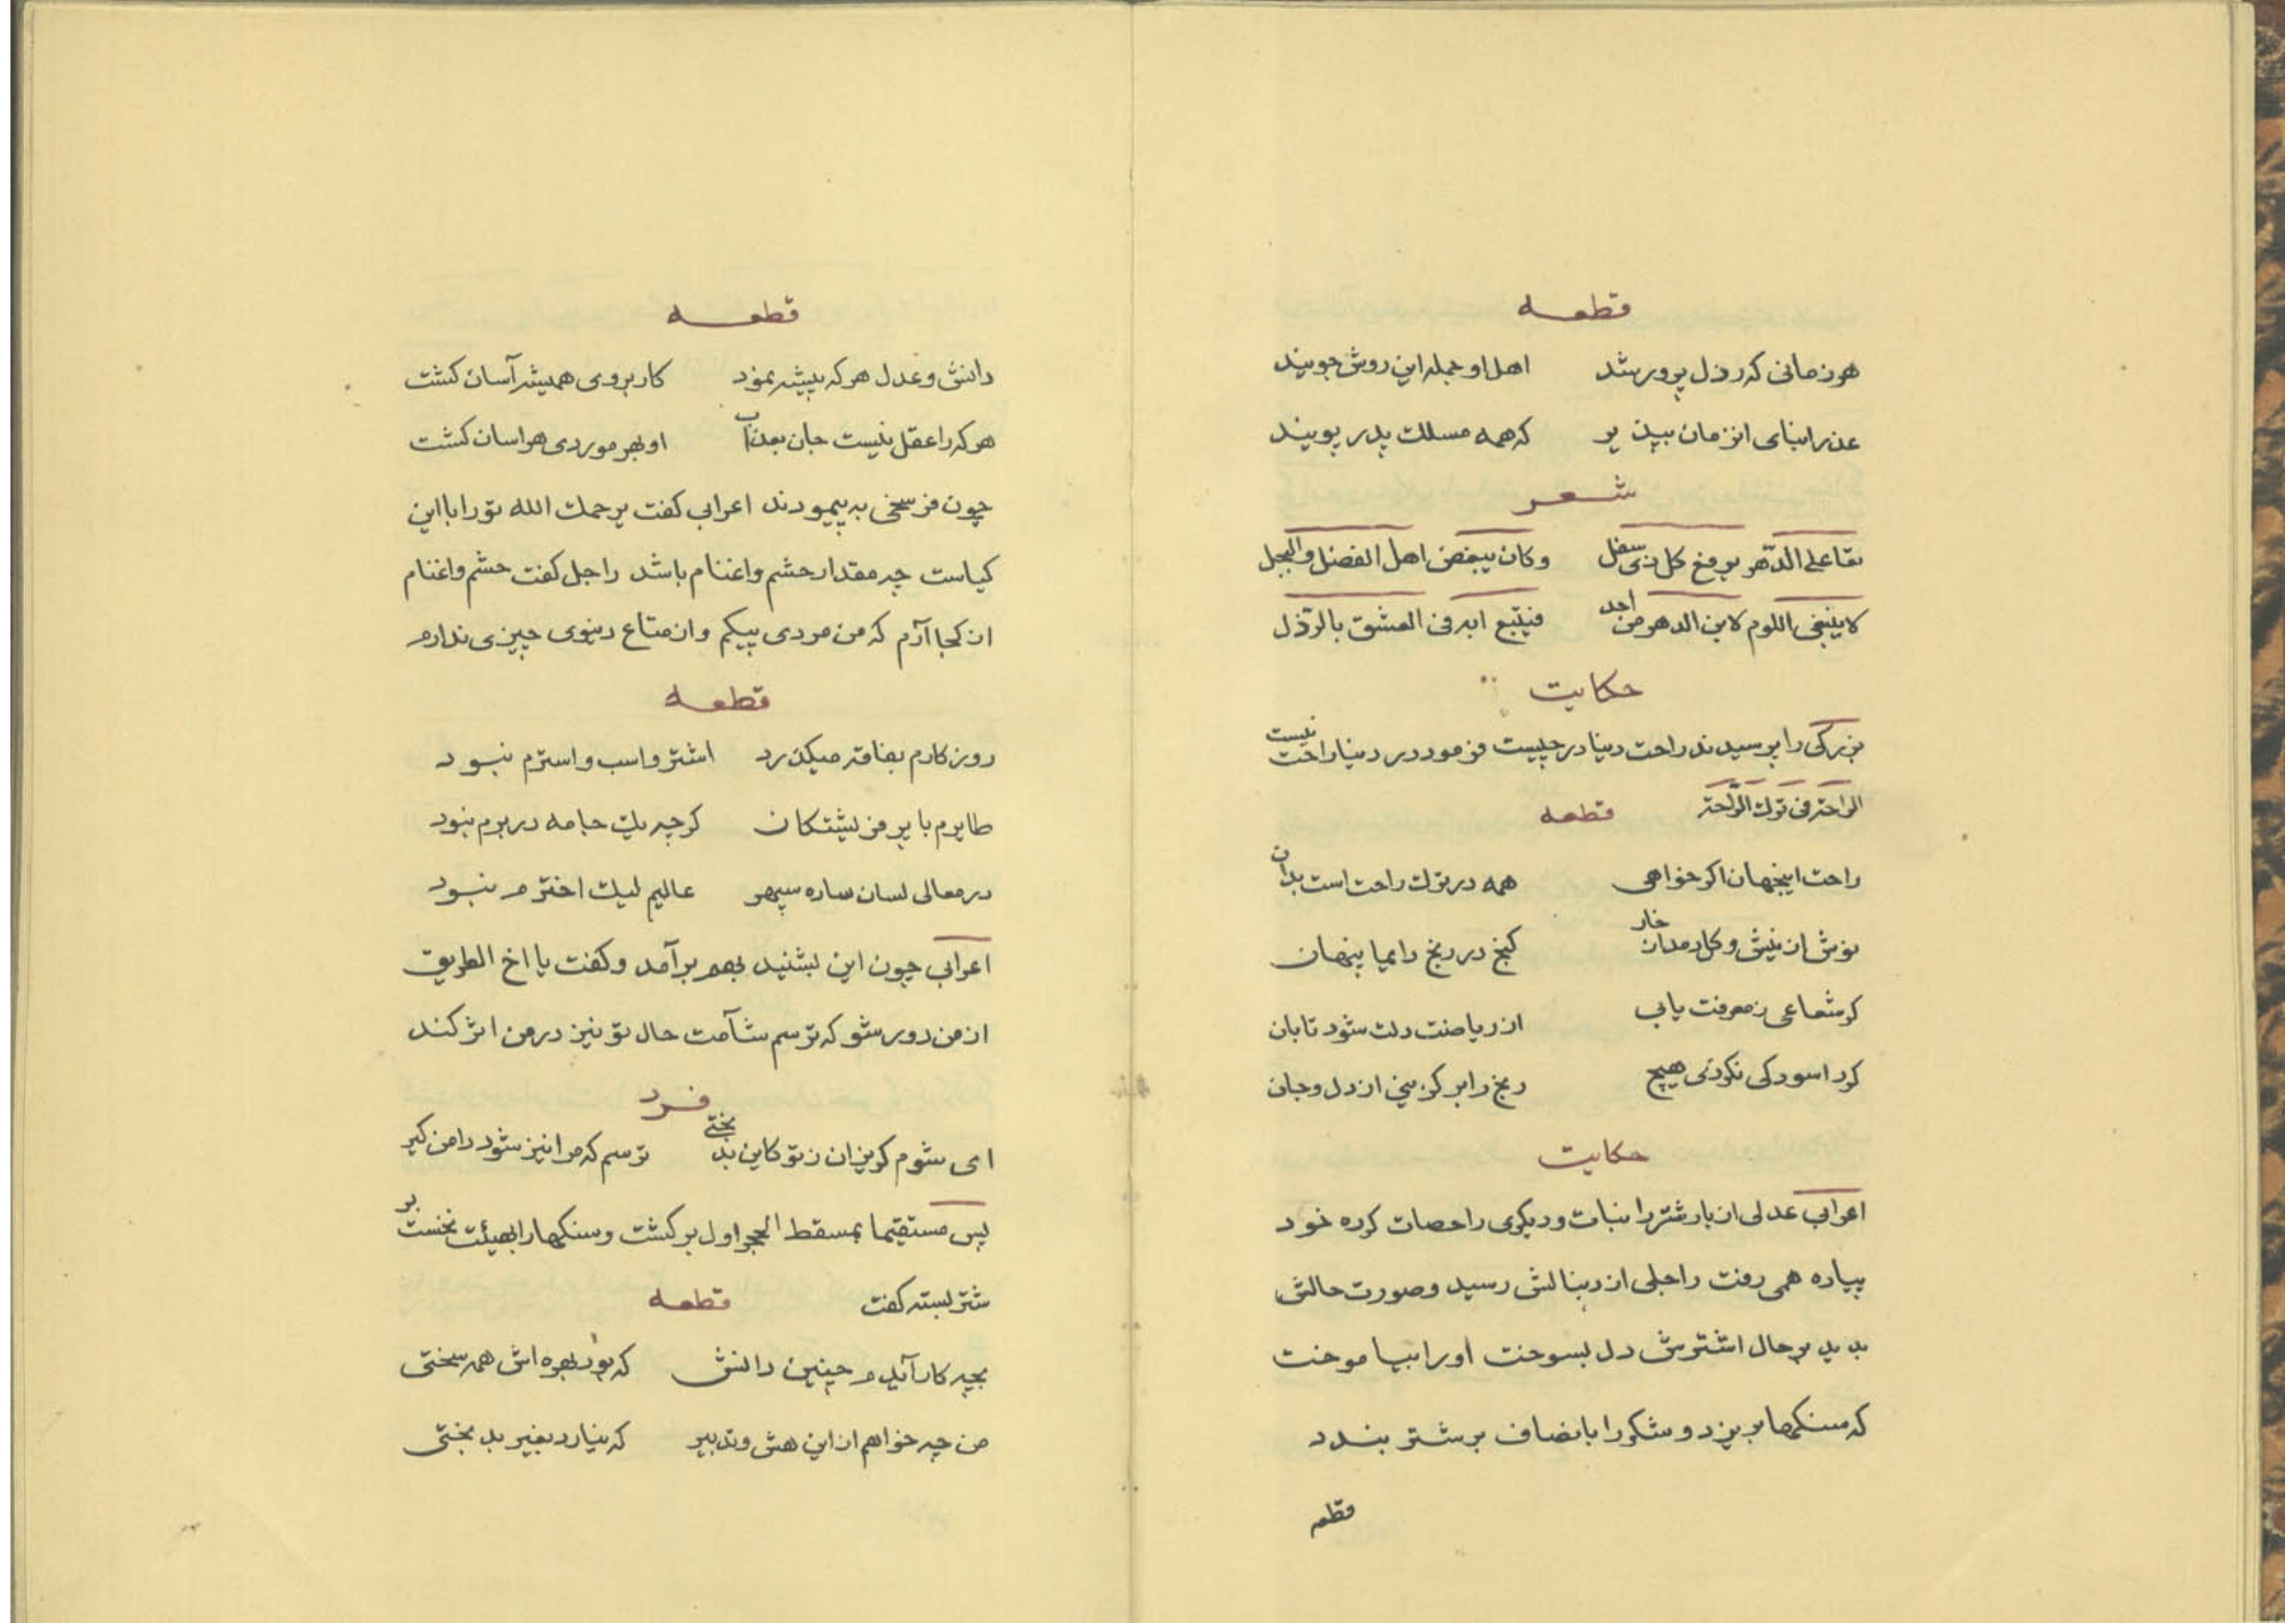 قطعه
هر زمانی که رذل پرور شد اهل او جمله این روش جویند
عذر ابنای این زمان بپذیر که همه مسلک پدر پویند
شعر
تعا علی الدّهر یرفع کل ذی سفل وکان یبغض اهل الفضل والبجل
لا ینبغی اللوم لابن الدهر من احد فیتبع ابه فی العشق بالرّذل
حکایت
بزرکی را پرسیدند راحت دنیا در چیست فرمود در دنیا راحت نیست
الراحة فی ترك الرّاحة قطعه
راحت اینجهان اکر خواهی همه در ترك راحت است بدان
نوش از نیش و کل زخار مدان کنج در رنج دایما پنهان
کر شعاعی ز معرفت یابی از ریاضت دلت شود تابان
کرد اسودکی نکردی هیچ رنج را بر کزینی از دل وجان
حکایت
اعرابی عدلی از بار شتر را نبات و دیکری را حصات کرده خود
پیاده همی رفت راجلی از دنبالش رسید وصورت حالش
بدید بر حال اشترش دل بسوخت اورا بیاموخت
که سنکها بریزد و شکر را بانصاف بر شتر بندد
قطعه
قطعه
دانش وعدل هرکه پیشه نمود کار بروی همیشه آسان کشت
هرکه را عقل نیست جان بعذاب او بهر موردی هراسان کشت
چون فرسخی به پیمودند اعرابی کفت یرحمك الله تورا با این
کیاست چه مقدار حشم و اغنام باشد راجل کفت حشم و اغنام
از کجا آرم که من مردی پیکم و از متاع دنیوی چیزی ندارم
قطعه
روزکارم بفاقه میکذرد اشتر و اسب و استرم نبود
طایرم با پر فرشتکان کرچه یك جامه در برم نبود
در معالی بسان ساده سپهر عالیم لیك اخترم نبود
اعرابی چون این بشنید بهم برآمد و کفت یا اخ الطریق
از من دور شو که ترسم شآمت حال تو نیز در من اثر کند
فرد
ای شوم کریزان ز تو کاین بد بختی ترسم که مرا نیز شود دامن کیر
پس مستقیما بمسقط الحجر اول برکشت و سنکها را بهیئت نخست بر
شتر بسته کفت قطعه
بچه کار آیدم چنین دانش که بود بهره اش همه سختی
من چه خواهم از این هش وتدبیر که نیارد بغیر بد بختی